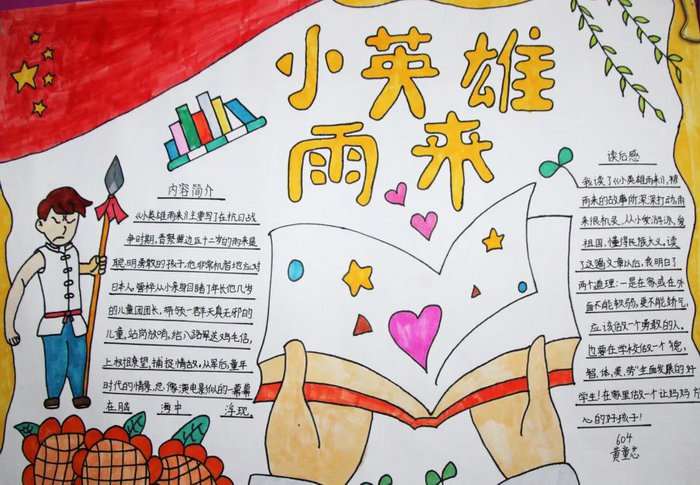 小英雄
雨来
内容简介
《小英雄雨来》主要写了在抗日战
争时期，晋察冀边区十二岁的雨来是
聪明勇敢的孩子，他非常机智地应对
日本人。曾经从小亲身目睹了年长他几岁
的儿童团团长，带领一群天真无邪的
儿童，站岗放哨，给八路军送鸡毛信，
上树担瞭望，捕捉情报，从军后，童年
时代的情景，总像演电影似的一幕幕
在脑海中浮现。
读后感
我读了《小英雄雨来》，被
雨来的故事所深深打动，雨
来很机灵、从小爱游泳、爱
祖国，懂得民族大义。读
了这篇文章以后，我明白了
两个道理：一是在家或在外
面不能软弱，更不能娇气，
应该做一个勇敢的人。
也要在学校做一个"德、
智、体、美、劳"全面发展的好
学生！在哪里做一个让妈妈
心的好孩子！
604